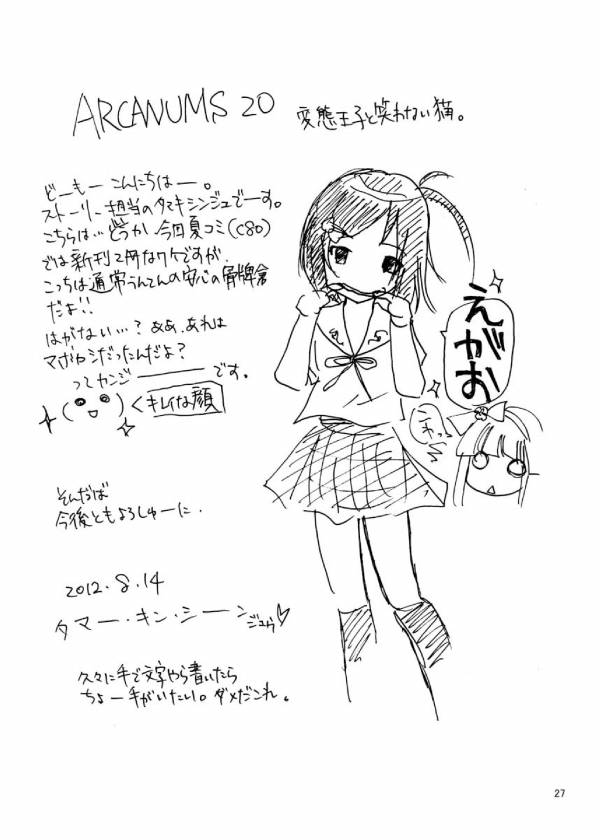 ARCANUMS 20
変態王子と笑わない猫。
どーもー こんにちはー。
ストーリー担当のタマキシンジュでーす。
こちらは…どうか、今回夏コミ(C80)
では新刊2冊なワケですが、
こっちは通常うんてんの安心の骨牌倉
だよ!!
はがない…？ああ、あれは
マボロシだったんだよ？
ってカンジ―――です。
キレイな顔
えがお
こわっ
そんだば
今後ともよろしゅーに.
2012.8.14
タマー・キン・シーン
ジュウ♡
久々に手で文字やら書いたら
ちょー手がいたい。ダメだこれ。
27